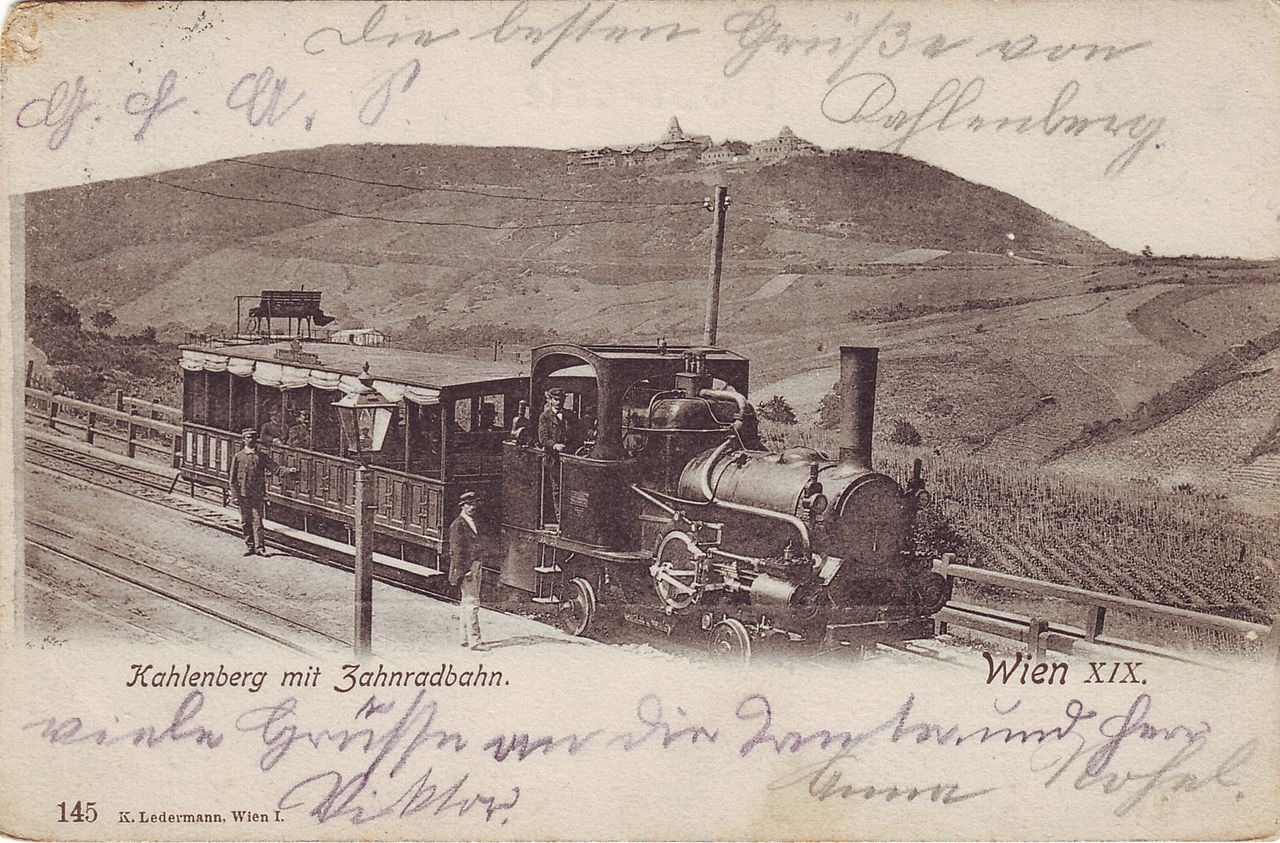 Die besten Grüße von
Kahlenberg.
Kahlenberg mit Zahnradbahn.
Wien XIX.
viele Grüsse an die Tante und Herr
Viktor
Anna
145 K. Ledermann, Wien I.